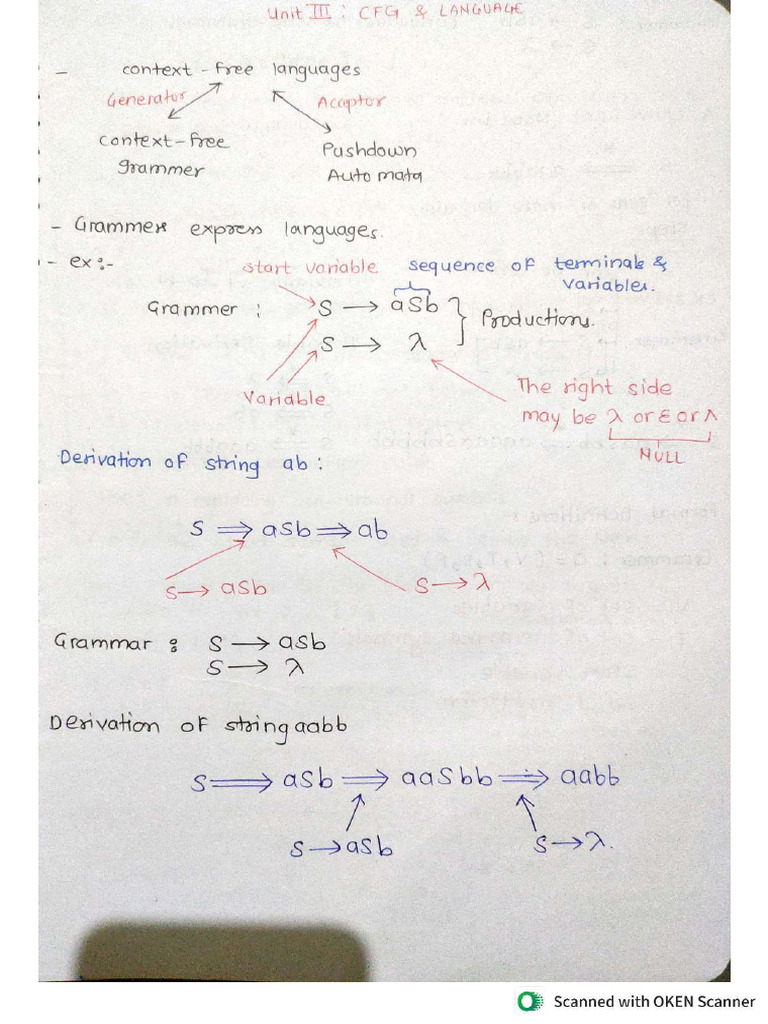 Unit III : CFG & LANGUAGE
- context-free languages
Generator Acceptor
context-free
grammer
Pushdown
Automata
- Grammers express languages.
- ex:-
start variable sequence of terminals &
variables.
Grammer : S → aSb } Productions.
S → λ
Variable
The right side
may be λ or ε or Λ
NULL
Derivation of string ab :
S ⟹ aSb ⟹ ab
S → aSb S → λ
Grammar : S → aSb
S → λ
Derivation of string aabb
S ⟹ aSb ⟹ aaSbb ⟹ aabb
S → aSb S → λ.
Scanned with OKEN Scanner